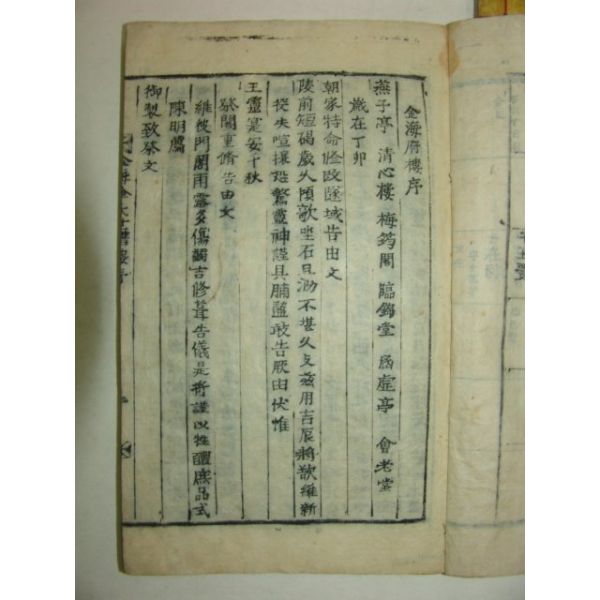 金海府樓序
燕子亭 清心樓 梅筠閣 臨錦堂 涵虛亭 會老堂
歲在丁卯
朝家特命修改陵域告由文
陵前短碣歲久頃欹坐石且泐不堪久支玆用吉辰將欲維新
役夫喧攘恐驚靈神謹具脯醢敢告厥由伏惟
王靈寔安千秋
祭閣重脩告由文
維彼門閣雨露多傷蠲吉修葺告儀是將謹以牲醴庶品式
陳明薦
御製致祭文